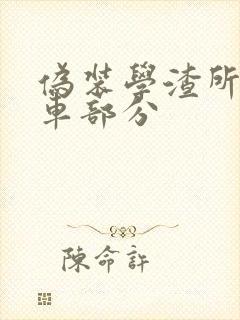 偽裝學渣所
車部分
陳命許